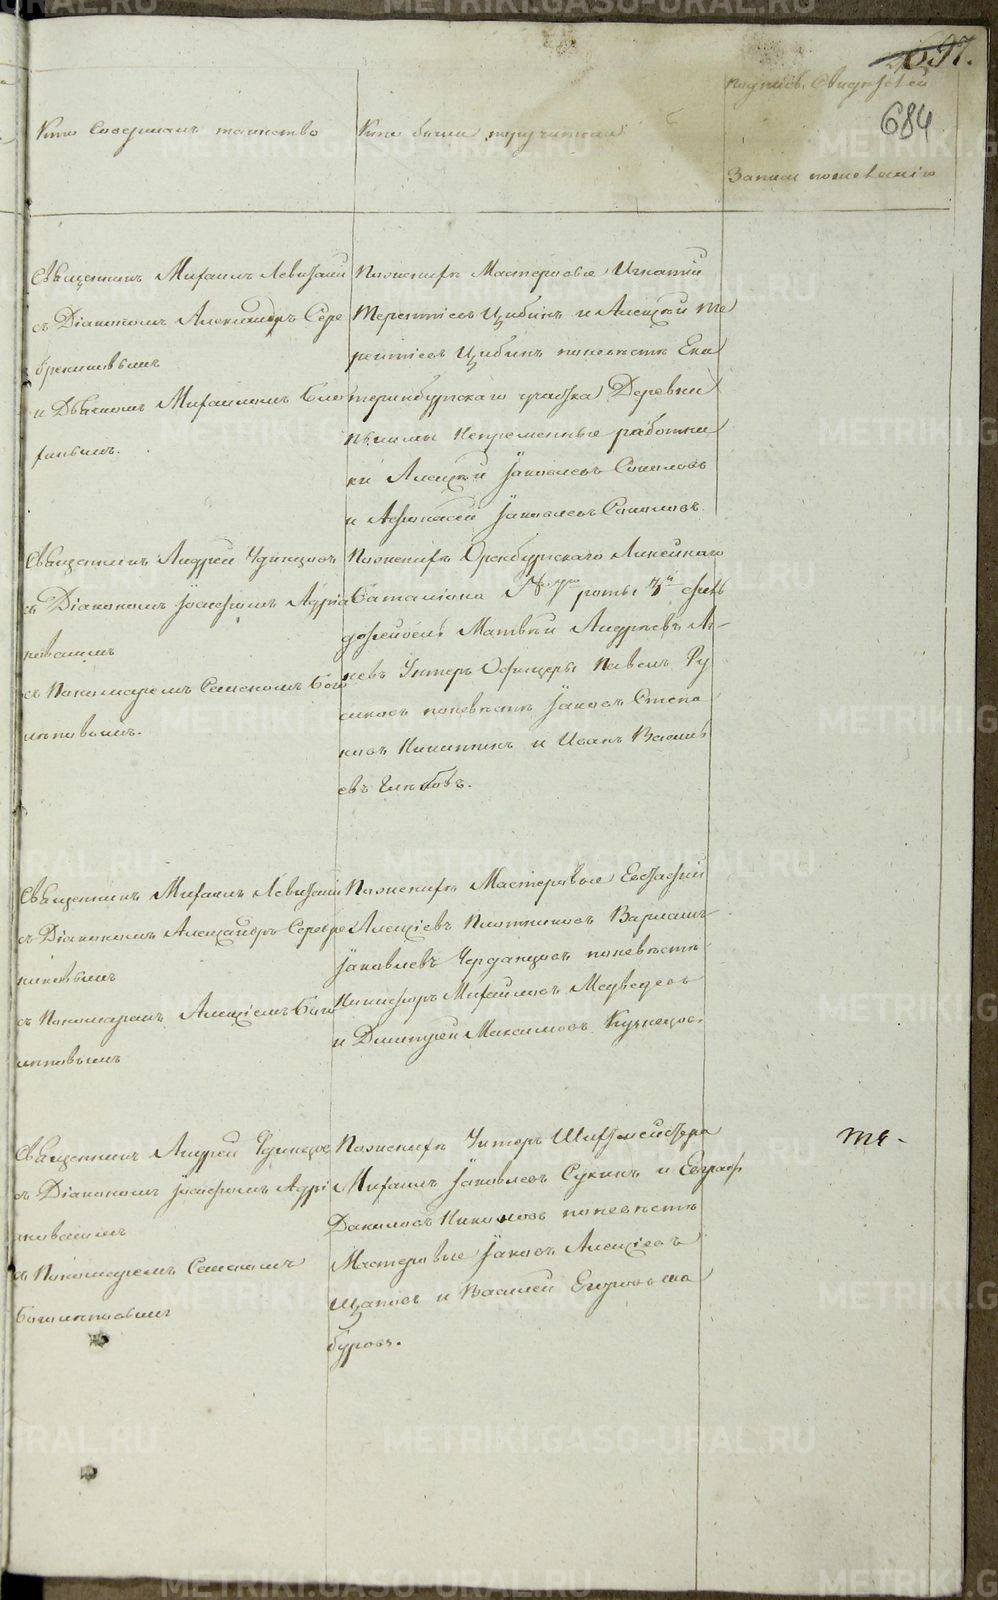 697.
684
Кто совершалъ таинство
Кто были поручители
подпись свидетелей
записи по желанію
Священникъ Михаилъ Левитскій
съ Діакономъ Александръ Сере
бренниковымъ
и Дьячкомъ Михаиломъ
По женихѣ Мастеровые Игнатій
Терентіевъ Цыбинъ и Алексѣй Те
рентіевъ Цыбинъ по невѣстѣ Ека
теринбургскаго участка Деревни
непременные работни
ки Алексѣй Яковлевъ Соколовъ
и Афонасей Яковлевъ Соколовъ.
Священникъ Андрей Удинцовъ
съ Діакономъ Іосифомъ Адріа
новымъ
съ Пономаремъ Семеномъ Бого
лѣповымъ.
По женихѣ Оренбургскаго Линейнаго
Баталіона роты фель
дфебель Матвѣй Андреевъ
Унтеръ Офицеры Павелъ
по невѣстѣ Яковъ Степа
новъ Никитинъ и Иванъ Василь
евъ Глѣбовъ.
Священникъ Михаилъ Левитскій
съ Діакономъ Александръ Серебре
никовымъ
съ Пономаремъ Алексіемъ Бого
лѣповымъ
По женихѣ Мастеровые Евстафій
Алексіевъ Плотниковъ Варламъ
Яковлевъ Черданцовъ по невѣстѣ
Никифоръ Михайловъ Медведевъ
и Дмитрей Максимовъ Кузнецовъ.
Священникъ Андрей Удинцовъ
съ Діакономъ Іосифомъ Адріа
новымъ
съ Пономаремъ Семеномъ
Боголѣповымъ
По женихѣ Унтеръ Шихтмейстера
Михаилъ Яковлевъ Сукинъ и Евграфъ
Даниловъ Никоновъ по невѣстѣ
Мастеровые Яковъ Алексіевъ
Щаповъ и Василей Егоровъ Ша
буровъ.